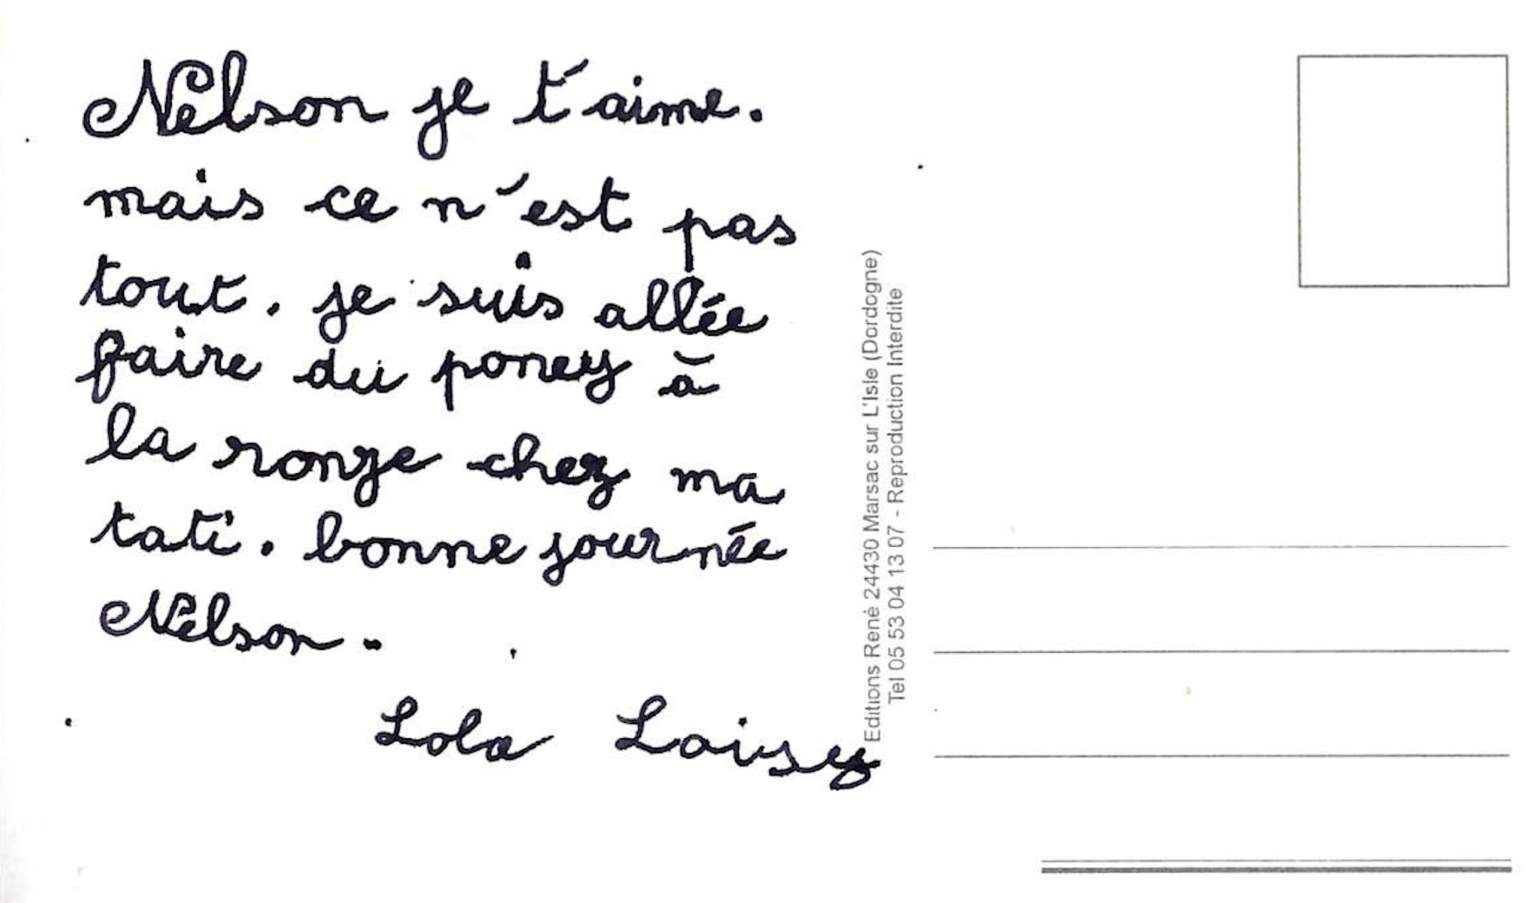 Nelson je t'aime.
mais ce n'est pas
tout. je suis allée
faire du poney à
la ronze chez ma
tati. bonne journée
Nelson.
Lola Loisey
Editions René 24430 Marsac sur L'Isle (Dordogne)
Tel 05 53 04 13 07 - Reproduction Interdite